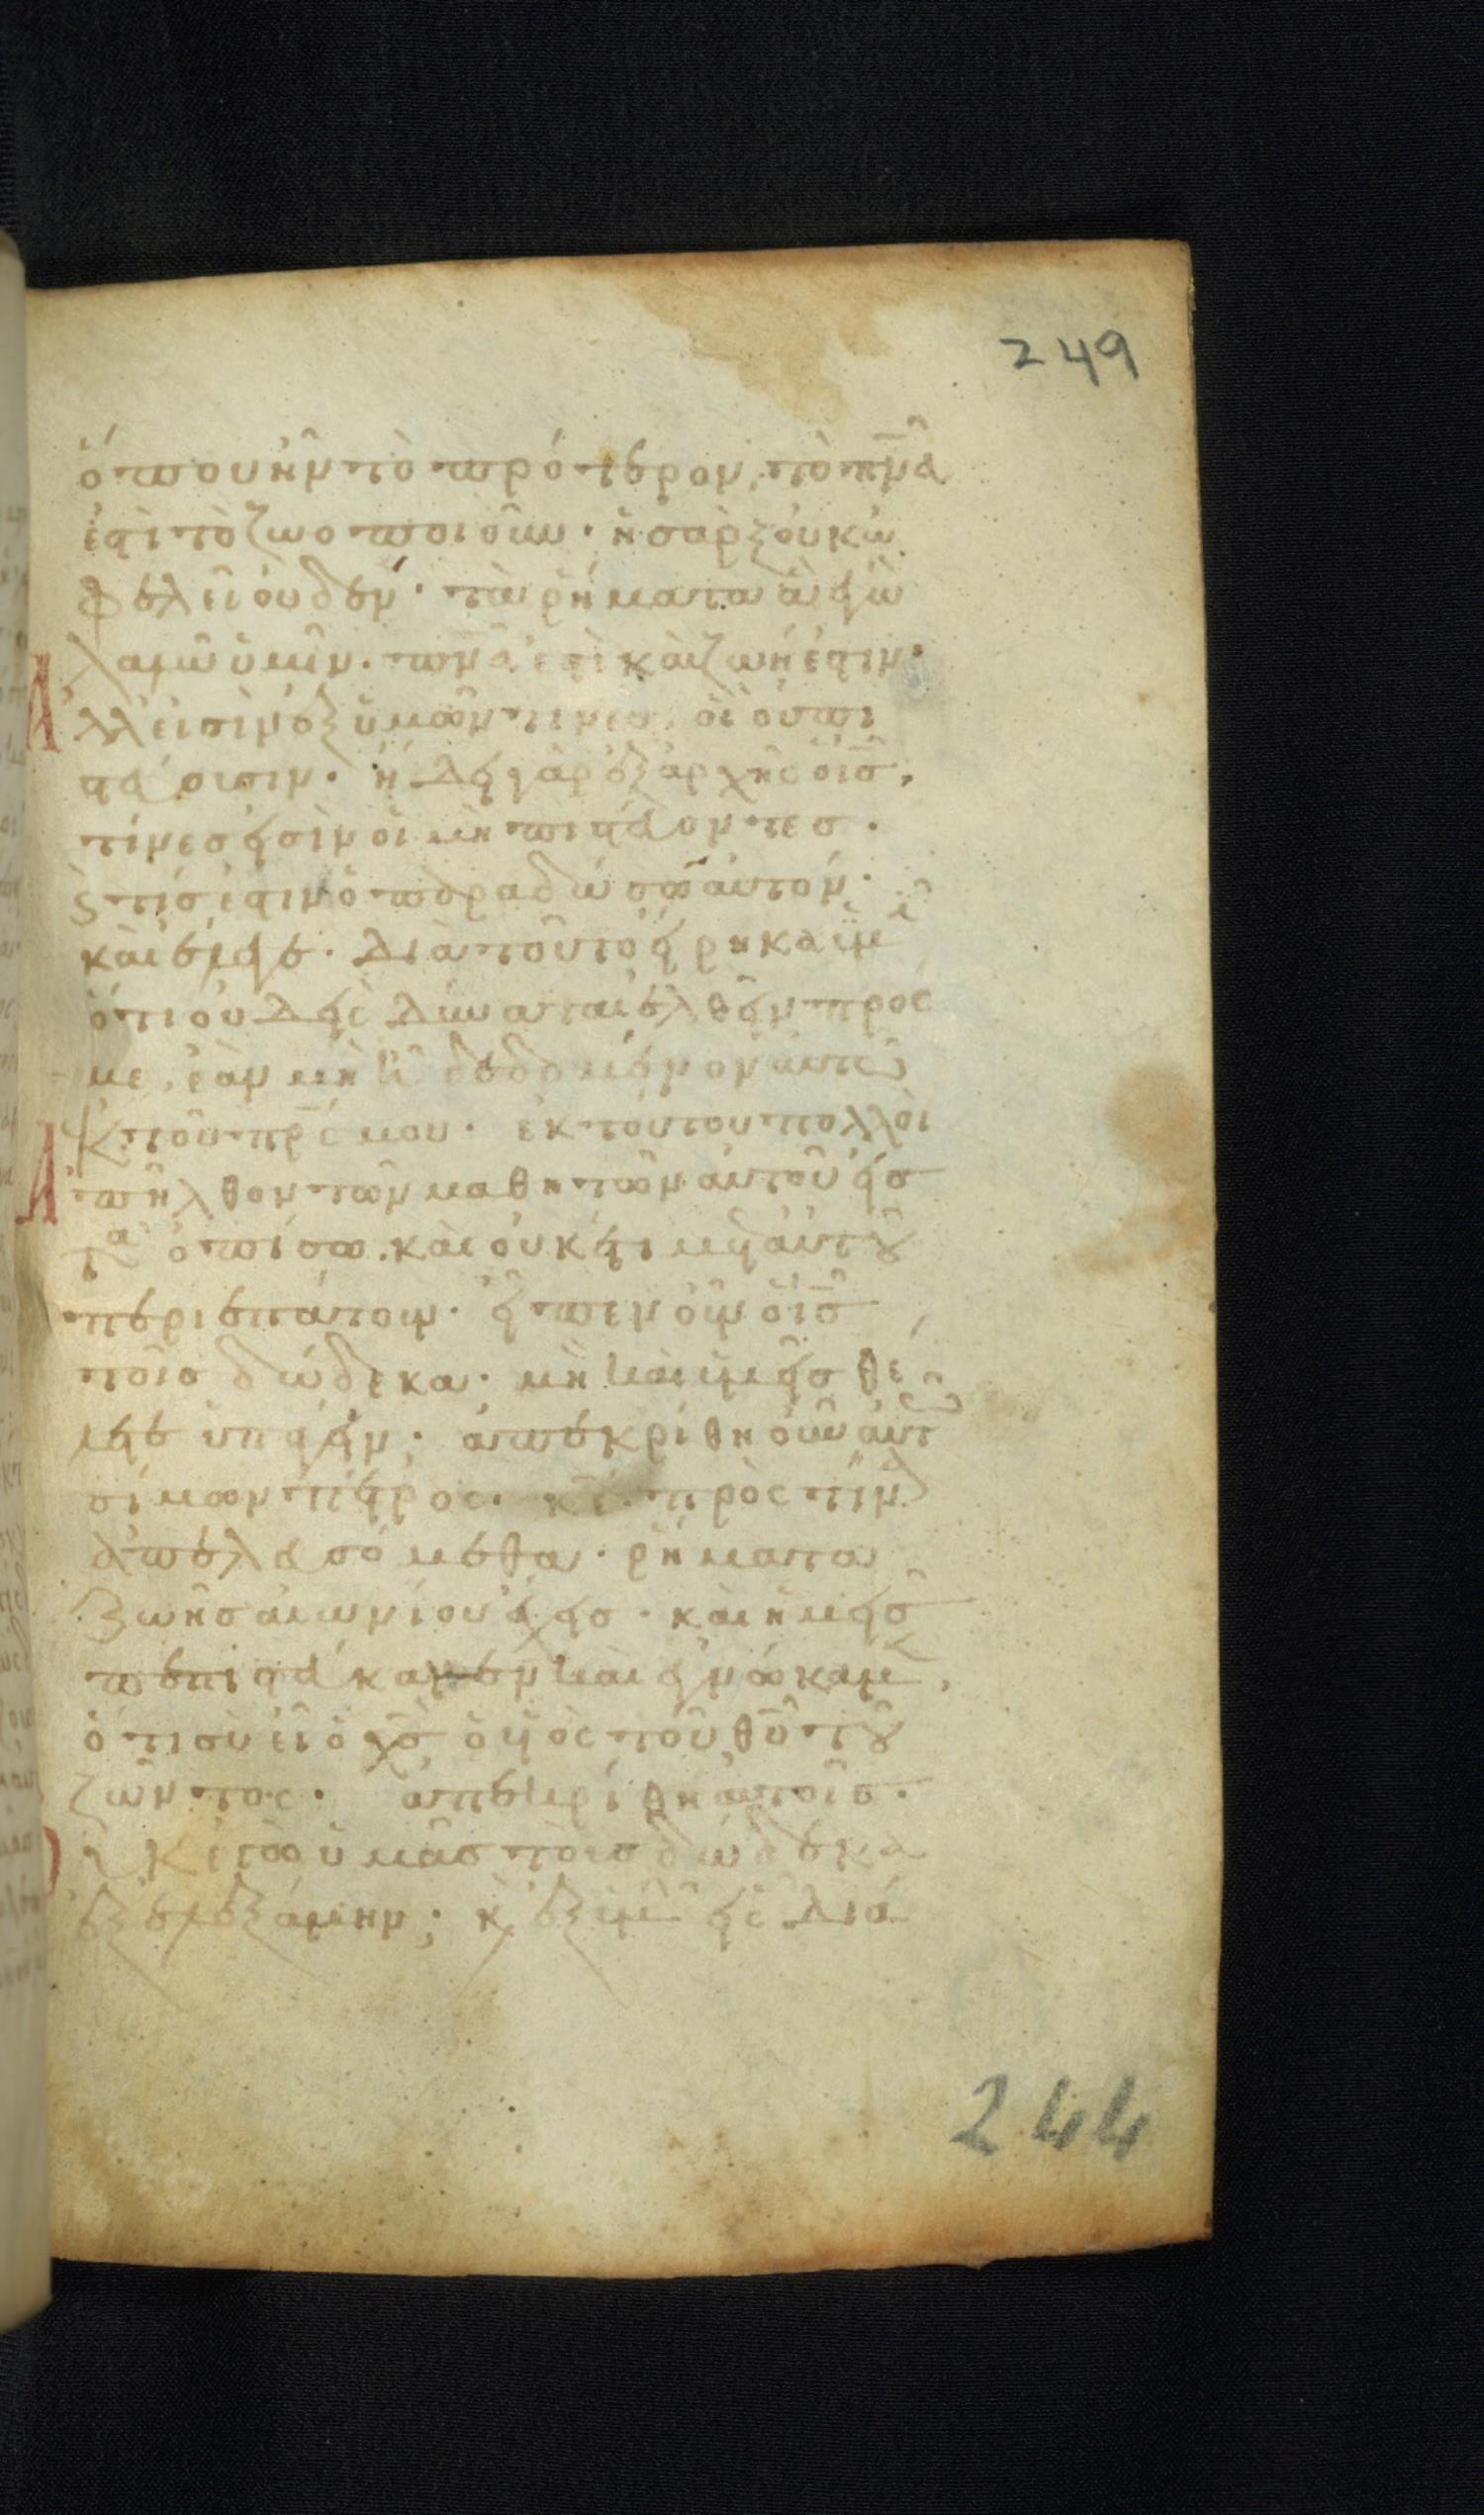 249
ὅπου ἦν τὸ πρότερον, τὸ πν̅α
ἐστὶ τὸ ζωοποιοῦν· ἡ σὰρξ οὐκ ὠ
φελεῖ οὐδέν· τὰ ῥήματα ἃ ἐγὼ
λαλῶ ὑμῖν· πν̅ά ἐστι καὶ ζωή ἐστιν·
Ἀλλ' εἰσὶν ἐξ ὑμῶν τινες, οἳ οὐ πι
στεύουσιν· ἤδει γὰρ ἐξ ἀρχῆς ὁ ις̅,
τίνες εἰσὶν οἱ μὴ πιστεύοντες·
καὶ τίς ἐστιν ὁ παραδώσων αὐτόν·
καὶ ἔλεγε· διὰ τοῦτο εἴρηκα ὑμῖν
ὅτι οὐδεὶς δύναται ἐλθεῖν πρός
με, ἐὰν μὴ ᾖ δεδομένον αὐτῶ
ἐκ τοῦ πρ̅ς μου· ἐκ τούτου πολλοὶ
Ἀπῆλθον τῶν μαθητῶν αὐτοῦ εἰς
τὰ ὀπίσω· καὶ οὐκέτι μετ' αὐτοῦ
περιεπάτουν· εἶπεν οὖν ὁ ις̅
τοῖς δώδεκα· μὴ καὶ ὑμεῖς θέ
λετε ὑπάγειν; ἀπεκρίθη οὖν αὐτῶ
σίμων πέτρος· κε̅· πρὸς τίνα
ἀπελευσόμεθα· ῥήματα
ζωῆς αἰωνίου ἔχεις· καὶ ἡμεῖς
πεπιστεύκαμεν καὶ ἐγνώκαμεν,
ὅτι σὺ εἶ ὁ χς̅ ὁ υἱὸς τοῦ θυ̅ τοῦ
ζῶντος· ἀπεκρίθη αὐτοῖς·
Οὐκ ἐγὼ ὑμᾶς τοὺς δώδεκα
ἐξελεξάμην; καὶ ἐξ ὑμῶν εἷς διά
244